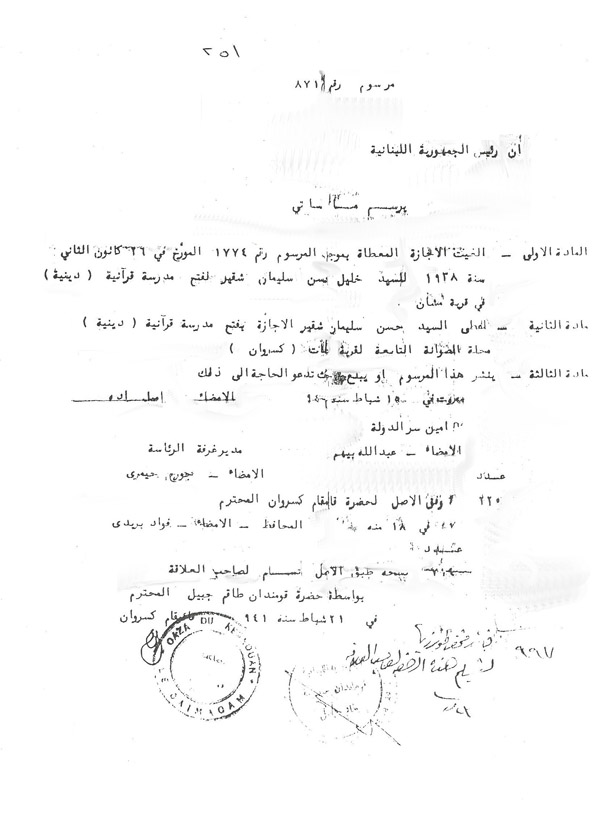 ٢٥١
مرسوم رقم ٨٧١
أن رئيس الجمهورية اللبنانية
يرسم ما ياتي
المادة الاولى – الغيت الاجازة المعطاة بموجب المرسوم رقم ١٧٧٤ المورخ في ٢٦ كانون الثاني
سنة ١٩٣٨ للسيد خليل حسن سليمان شقير لفتح مدرسة قرآنية ( دينية )
في قرية مشان .
مادة الثانية – للسيد حسن سليمان شقير الاجازة بفتح مدرسة قرآنية ( دينية )
محلة الصوانة التابعة لقرية ( كسروان )
مادة الثالثة – ينشر هذا المرسوم او يبلغ حيث تدعو الحاجة الى ذلك
بيروت في ١٥ شباط سنه الامضاء
امين سر الدولة
الامضاء – عبدالله بيهم مدير غرفة الرئاسة
عدد الامضاء – جورج حيمرى
٢٢٥ وفق الاصل لحضرة قائمقام كسروان المحترم
في ١٨ منه المحافظ – الامضاء – فواد بريدى
عدد
نسخة طبق الاصل لصاحب العلاقة
بواسطة حضرة قومندان طاقم جبيل المحترم
في ٢١ شباط سنه ٩٤١ قائمقام كسروان
CAZA DU KESROUAN
LE CAIMACAM
٩٩٧